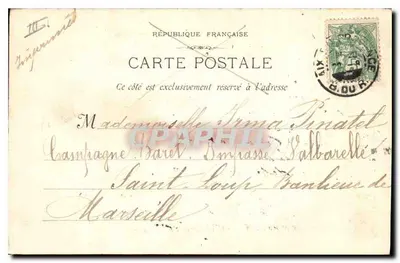 III.
Imprimés
RÉPUBLIQUE FRANÇAISE
CARTE POSTALE
Ce côté est exclusivement réservé à l'adresse
Mademoiselle Irma Pinatel
CPAPHIL
Campagne Baret. Impasse Valbarelle
Saint Loup Banlieue de
Marseille